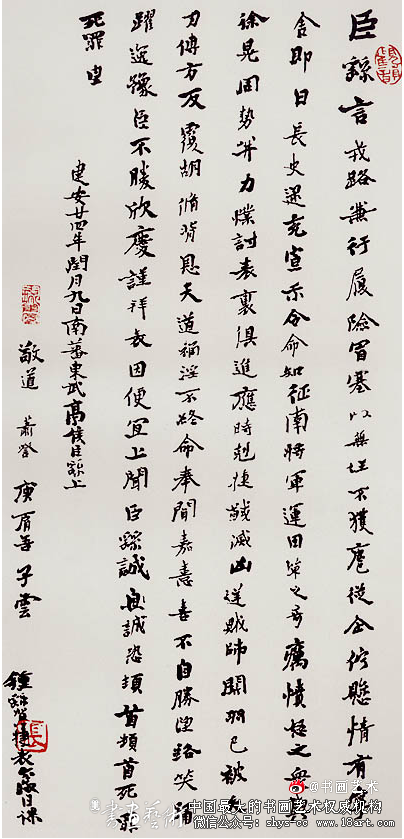 臣繇言戎路兼行履險冒寒以無任不獲扈從企佇懸情有
舍即日長史逯充宣示令命知征南將軍運田單之奇厲憤怒之眾與
徐晃同勢并力撲討表裏俱進應時剋捷馘滅凶逆賊帥關羽已被矢
刃傅方反覆胡脩背恩天道禍淫不終命奉聞嘉憙喜不自勝望路笑踊
躍逸豫臣不勝欣慶謹拜表因便宜上聞臣繇誠皇誠恐頓首頓首死罪
死罪
建安廿四年閏月九日南蕃東武高侯臣繇上
敬道 蕭譽 庚肩吾 子雲
鍾繇賀捷表 日課
@书画艺术
中国最大的书画艺术权威机构
微信公众号: shys-cc www.18art.com